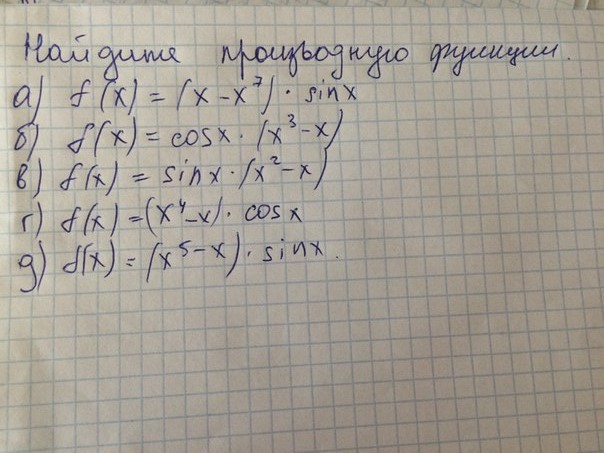 Найдите производную функции.
а) f(x) = (x - x⁷) · sinx
б) f(x) = cosx · (x³ - x)
в) f(x) = sinx · (x² - x)
г) f(x) = (x⁴ - x) · cosx
д) f(x) = (x⁵ - x) · sinx.